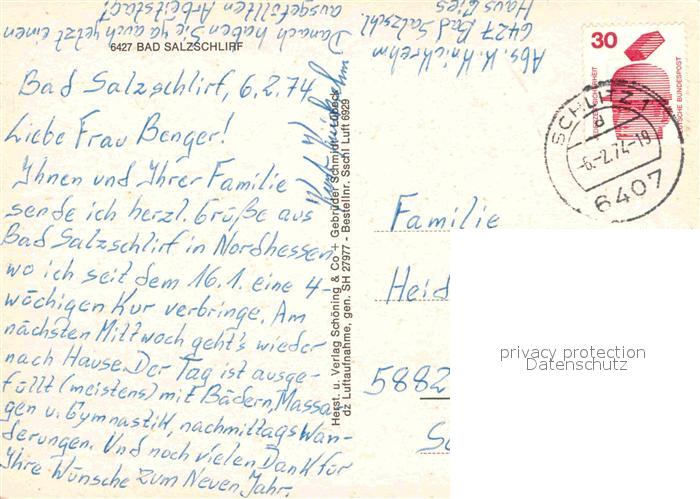 6427 BAD SALZSCHLIRF
Bad Salzschlirf, 6.2.74
Liebe Frau Benger!
Ihnen und Ihrer Familie
sende ich herzl. Grüße aus
Bad Salzschlirf in Nordhessen,
wo ich seit dem 16.1. eine 4-
wöchigen Kur verbringe. Am
nächsten Mittwoch geht's wieder
nach Hause. Der Tag ist ausge-
füllt (meistens) mit Bädern, Massa-
gen u. Gymnastik, nachmittags Wan-
derungen. Und noch vielen Dank für
Ihre Wünsche zum Neuen Jahr.
Danach haben Sie ja auch jetzt einen
ausgefüllten Arbeitstag!
Herst. u. Verlag Schöning & Co + Gebrüder Schmidt, Lübeck
dz Luftaufnahme, gen. SH 27977 - Bestellnr. Sschl Luft 6929
Abs. K. Knickrehm
6427 Bad Salzschl.
Haus Gies
30
DEUTSCHE BUNDESPOST
SCHLITZ 1
d
-6.-2.74-19
6407
Familie
Heid
5882
privacy protection
Datenschutz